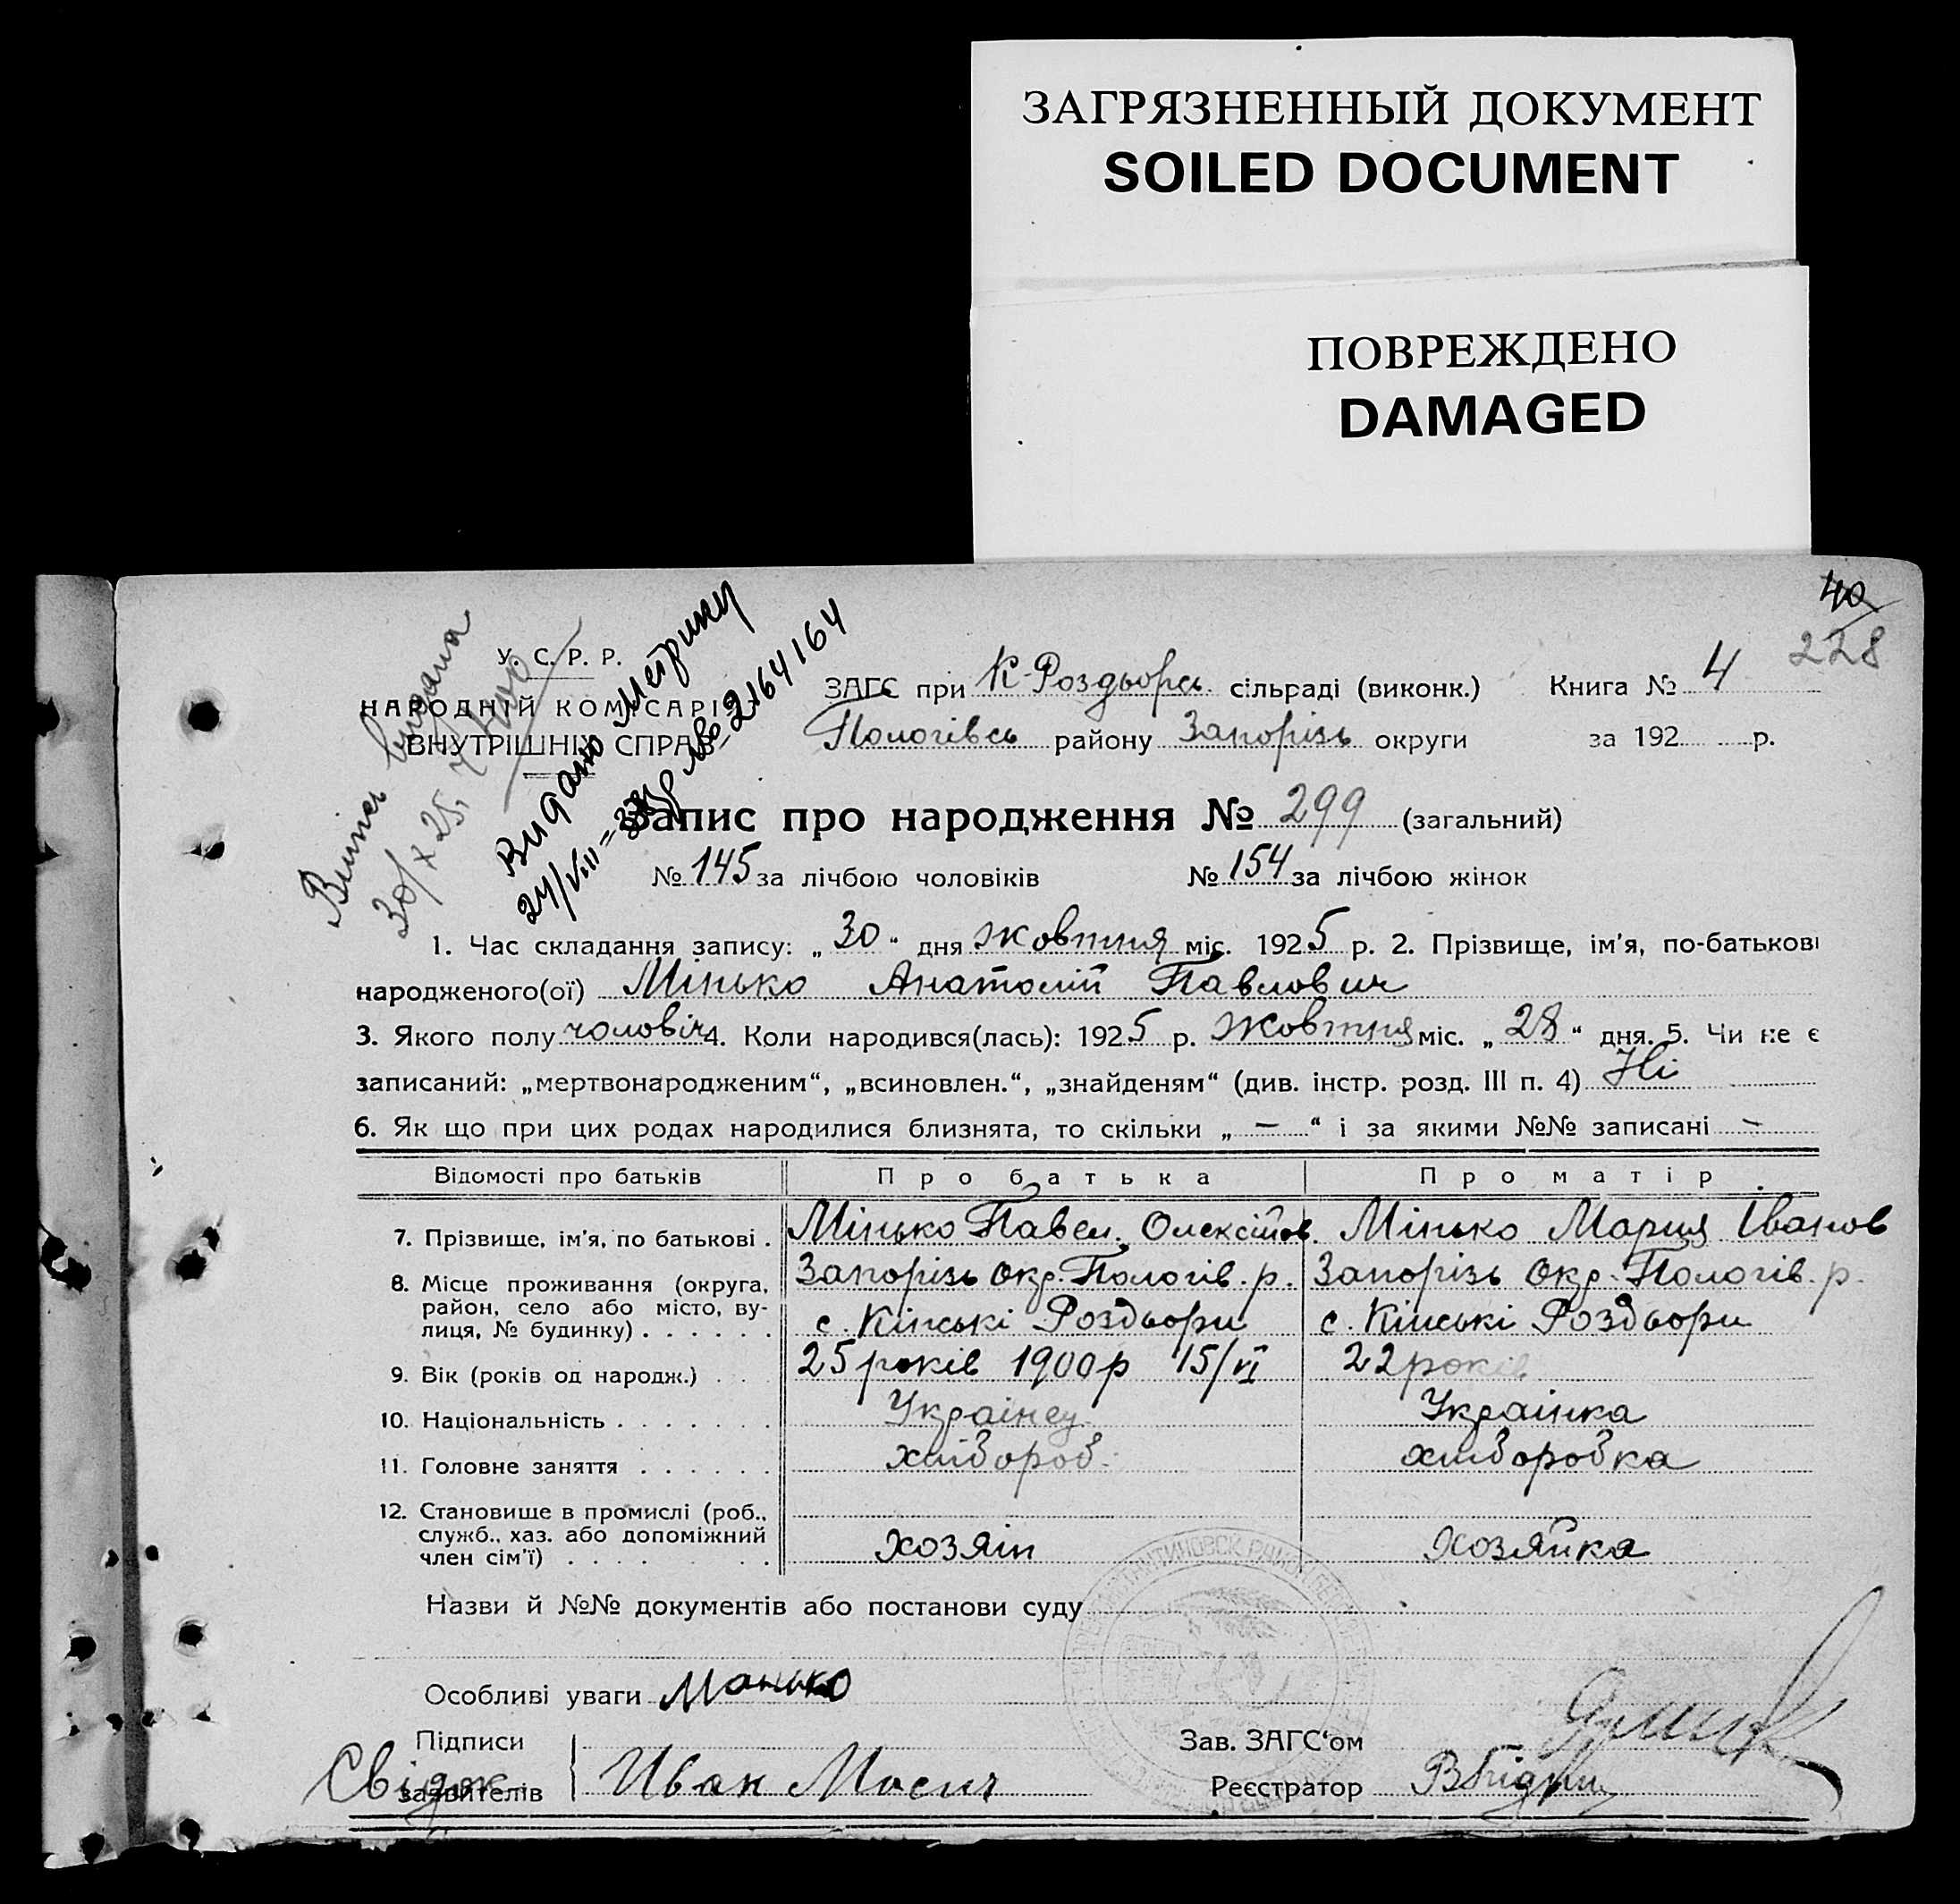 ЗАГРЯЗНЕННЫЙ ДОКУМЕНТ
SOILED DOCUMENT
ПОВРЕЖДЕНО
DAMAGED
40
228
Випись видана
30/X 25.
Видано метрику
24/VIII = 33р № 2164164
У. С. Р. Р.
НАРОДНІЙ КОМІСАРІЯТ
ВНУТРІШНІХ СПРАВ
ЗАГС при К-Роздьорсь сільраді (виконк.) Книга № 4
Пологівсь району Запорізь округи за 192 р.
Запис про народження № 299 (загальний)
№ 145 за лічбою чоловіків № 154 за лічбою жінок
1. Час складання запису: „30“ дня жовтня міс. 1925 р. 2. Прізвище, ім’я, по-батькові
народженого(ої) Мінько Анатолій Павлович
3. Якого полу чоловіч 4. Коли народився(лась): 1925 р. Жовтня міс. „28“ дня. 5. Чи не є
записаний: „мертвонародженим“, „всиновлен.“, „знайденям“ (див. інстр. розд. III п. 4) Ні
6. Як що при цих родах народилися близнята, то скільки „—“ і за якими №№ записані —
Відомості про батьків Про батька Про матір
7. Прізвище, ім’я, по батькові . Мінько Павел. Олексійов. Мінько Мария Іванов
8. Місце проживання (округа, Запорізь окр. Пологів. р. Запорізь окр. Пологів. р.
район, село або місто, ву-
лиця, № будинку) . . . . . . с. Кінські Роздьори с. Кінські Роздьори
9. Вік (років од народж.) . . . 25 років 1900р 15/VI 22 років
10. Національність . . . . . . . Українец Українка
11. Головне заняття . . . . . . хлібороб. хліборобка
12. Становище в промислі (роб.,
служб., хаз. або допоміжний
член сім’ї) . . . . . . . . хозяін хозяйка
Назви й №№ документів або постанови суду
Особливі уваги Манько
Підписи
заявителів
Свідк
Иван Мосич
Зав. ЗАГС‘ом
Реєстратор